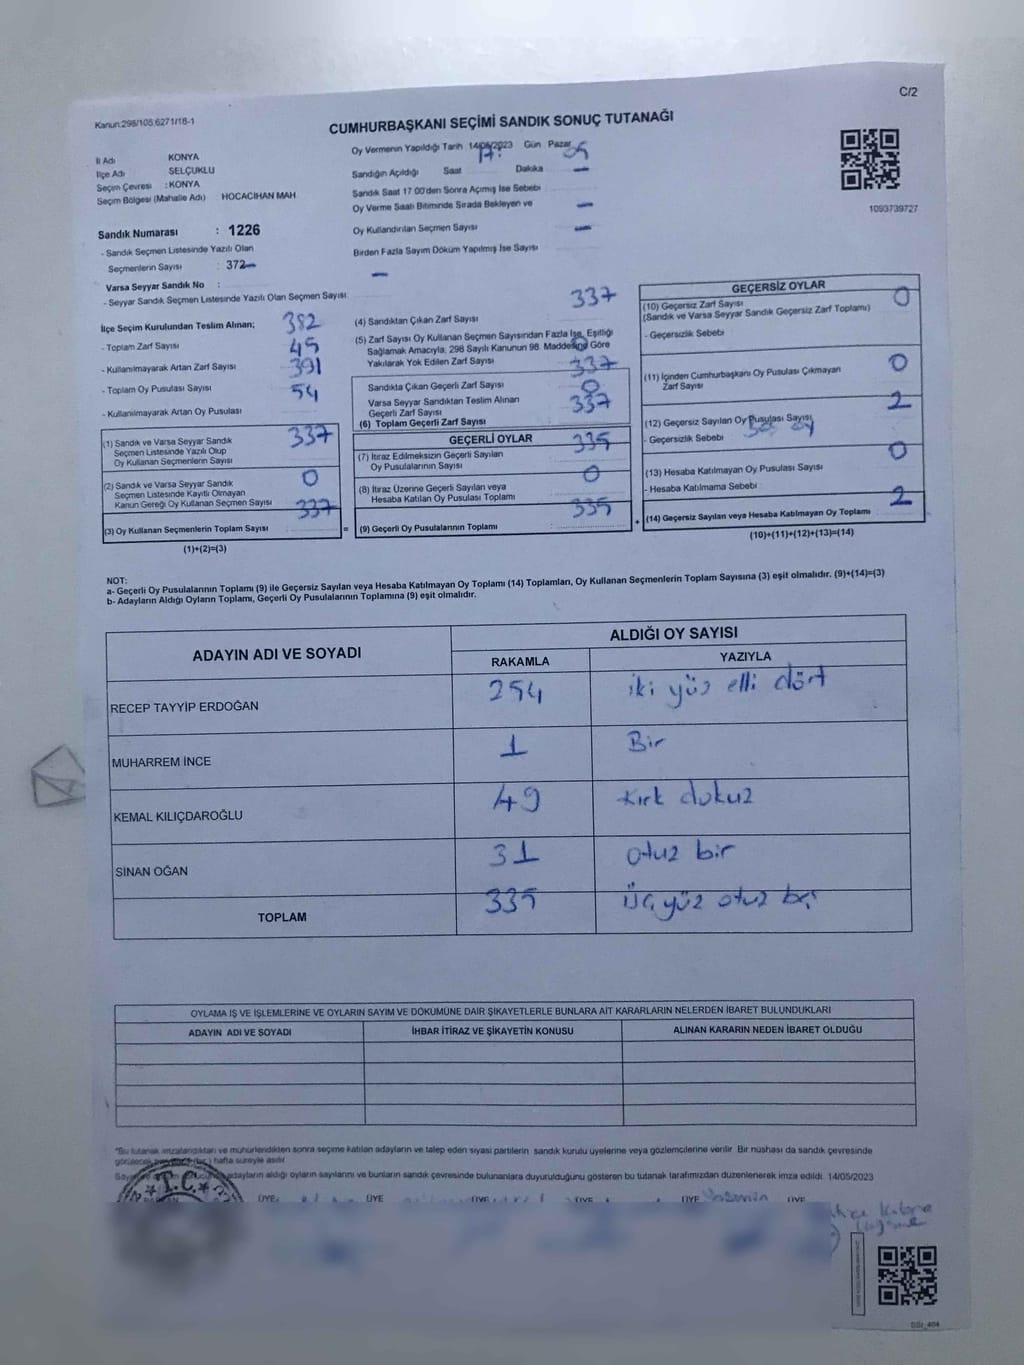 C/2
Kanun:298/105,6271/18-1
CUMHURBAŞKANI SEÇİMİ SANDIK SONUÇ TUTANAĞI
İl Adı KONYA
İlçe Adı SELÇUKLU
Seçim Çevresi : KONYA
Seçim Bölgesi (Mahalle Adı) HOCACİHAN MAH
Sandık Numarası : 1226
- Sandık Seçmen Listesinde Yazılı Olan
Seçmenlerin Sayısı : 372
Varsa Seyyar Sandık No :
- Seyyar Sandık Seçmen Listesinde Yazılı Olan Seçmen Sayısı:
Oy Vermenin Yapıldığı Tarih 14/05/2023 Gün Pazar
Sandığın Açıldığı Saat 17: Dakika 05
Sandık Saat 17:00'den Sonra Açılmış İse Sebebi —
Oy Verme Saati Bitiminde Sırada Bekleyen ve
Oy Kullandırılan Seçmen Sayısı —
Birden Fazla Sayım Döküm Yapılmış İse Sayısı —
1093739727
İlçe Seçim Kurulundan Teslim Alınan;
- Toplam Zarf Sayısı 382
- Kullanılmayarak Artan Zarf Sayısı 45
- Toplam Oy Pusulası Sayısı 391
- Kullanılmayarak Artan Oy Pusulası 54
(1) Sandık ve Varsa Seyyar Sandık
Seçmen Listesinde Yazılı Olup
Oy Kullanan Seçmenlerin Sayısı 337
(2) Sandık ve Varsa Seyyar Sandık
Seçmen Listesinde Kayıtlı Olmayan
Kanun Gereği Oy Kullanan Seçmen Sayısı 0
(3) Oy Kullanan Seçmenlerin Toplam Sayısı 337
(1)+(2)=(3)
=
(4) Sandıktan Çıkan Zarf Sayısı 337
(5) Zarf Sayısı Oy Kullanan Seçmen Sayısından Fazla İse, Eşitliği
Sağlamak Amacıyla, 298 Sayılı Kanunun 98. Maddesine Göre
Yakılarak Yok Edilen Zarf Sayısı 0
Sandıkta Çıkan Geçerli Zarf Sayısı 337
Varsa Seyyar Sandıktan Teslim Alınan
Geçerli Zarf Sayısı 0
(6) Toplam Geçerli Zarf Sayısı 337
GEÇERLİ OYLAR
(7) İtiraz Edilmeksizin Geçerli Sayılan
Oy Pusulalarının Sayısı 335
(8) İtiraz Üzerine Geçerli Sayılan veya
Hesaba Katılan Oy Pusulası Toplamı 0
(9) Geçerli Oy Pusulalarının Toplamı 335
+
GEÇERSİZ OYLAR
(10) Geçersiz Zarf Sayısı 0
(Sandık ve Varsa Seyyar Sandık Geçersiz Zarf Toplamı)
- Geçersizlik Sebebi
(11) İçinden Cumhurbaşkanı Oy Pusulası Çıkmayan
Zarf Sayısı 0
(12) Geçersiz Sayılan Oy Pusulası Sayısı 2
- Geçersizlik Sebebi
(13) Hesaba Katılmayan Oy Pusulası Sayısı 0
- Hesaba Katılmama Sebebi
(14) Geçersiz Sayılan veya Hesaba Katılmayan Oy Toplamı 2
(10)+(11)+(12)+(13)=(14)
NOT:
a- Geçerli Oy Pusulalarının Toplamı (9) ile Geçersiz Sayılan veya Hesaba Katılmayan Oy Toplamı (14) Toplamları, Oy Kullanan Seçmenlerin Toplam Sayısına (3) eşit olmalıdır. (9)+(14)=(3)
b- Adayların Aldığı Oyların Toplamı, Geçerli Oy Pusulalarının Toplamına (9) eşit olmalıdır.
ADAYIN ADI VE SOYADI ALDIĞI OY SAYISI
RAKAMLA YAZIYLA
RECEP TAYYİP ERDOĞAN 254 iki yüz elli dört
MUHARREM İNCE 1 Bir
KEMAL KILIÇDAROĞLU 49 Kırk dokuz
SİNAN OĞAN 31 otuz bir
TOPLAM 335 üç yüz otuz beş
OYLAMA İŞ VE İŞLEMLERİNE VE OYLARIN SAYIM VE DÖKÜMÜNE DAİR ŞİKAYETLERLE BUNLARA AİT KARARLARIN NELERDEN İBARET BULUNDUKLARI
ADAYIN ADI VE SOYADI İHBAR İTİRAZ VE ŞİKAYETİN KONUSU ALINAN KARARIN NEDEN İBARET OLDUĞU
"Bu tutanak imzalandıktan ve mühürlendikten sonra seçime katılan adayların ve talep eden siyasi partilerin sandık kurulu üyelerine veya gözlemcilerine verilir. Bir nüshası da sandık çevresinde
hafta süreyle asılır.
adayların aldığı oyların sayılarını ve bunların sandık çevresinde bulunanlara duyurulduğunu gösteren bu tutanak tarafımızdan düzenlenerek imza edildi. 14/05/2023
T.C.
ÜYE ÜYE ÜYE ÜYE ÜYE Yasemin ÜYE
Kübra